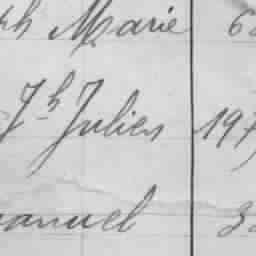 ph Marie 6
Jh Julien 197
anuel 3